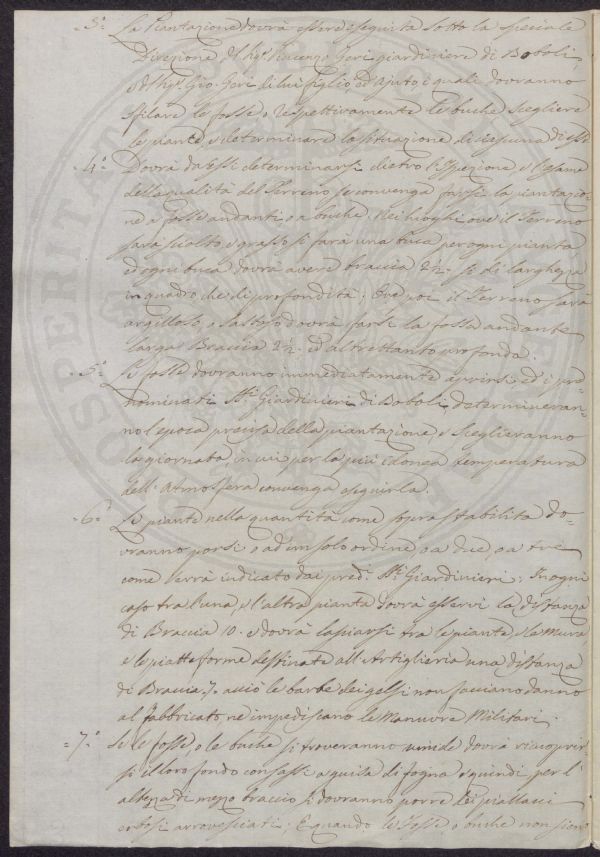 3° La Piantazione dovrà essere eseguita sotto la speciale
Direzione del Sig.r Vincenzo Gori giardiniere di Boboli
e del Sig.r Gio. Gori di lui figlio ed Ajuto, i quali dovranno
sfilare le fosse o respettivamente le buche scegliere
le piante, e determinare la situazione di ciascuna di esse
4° Dovrà da Essi determinarsi dietro l'Ispezione, e l'esame
della qualità del Terreno se convenga farsi la piantazio-
ne a fosse andanti, o a buche. Nei luoghi ove il Terreno
sarà sciolto, e grasso si farà una buca per ogni pianta
ed ogni buca dovrà avere braccia 2½ sì di larghezza
in quadro, che di profondità; Ove poi il Terreno sarà
argilloso, o sassoso dovrà farsi la fossa andante
larga Braccia 2½ ed altrettanto profonda.
5° Le fosse dovranno immediatamente aprirsi ed i pre-
nominati SS.ri Giardinieri di Boboli determineran-
no l'epoca precisa della piantazione, e sceglieranno
la giornata, in cui per la più idonea temperatura
dell'Atmosfera convenga eseguirla.
6° Le piante nella quantità come sopra stabilita do-
vranno porsi o ad un solo ordine, o a due, o a tre
come verrà indicato dai pred.i SS.ri Giardinieri: In ogni
caso tra l'una, e l'altra pianta dovrà esservi la distanza
di Braccia 10. e dovrà lasciarsi tra le piante, e le Mura,
e le piatteforme destinate all'Artiglieria una distanza
di Braccia 7. acciò le barbe dei gelsi non facciano danno
al fabbricato, nè impediscano le Manovre Militari.
7° Se le fosse, o le buche si troveranno umide dovrà ricuoprir-
si il loro fondo con sassi a guisa di fogna, e quindi per l'
altezza di mezzo braccio si dovranno porre dei piallacci
erbosi arrovesciati; E quando le fosse o buche non siano